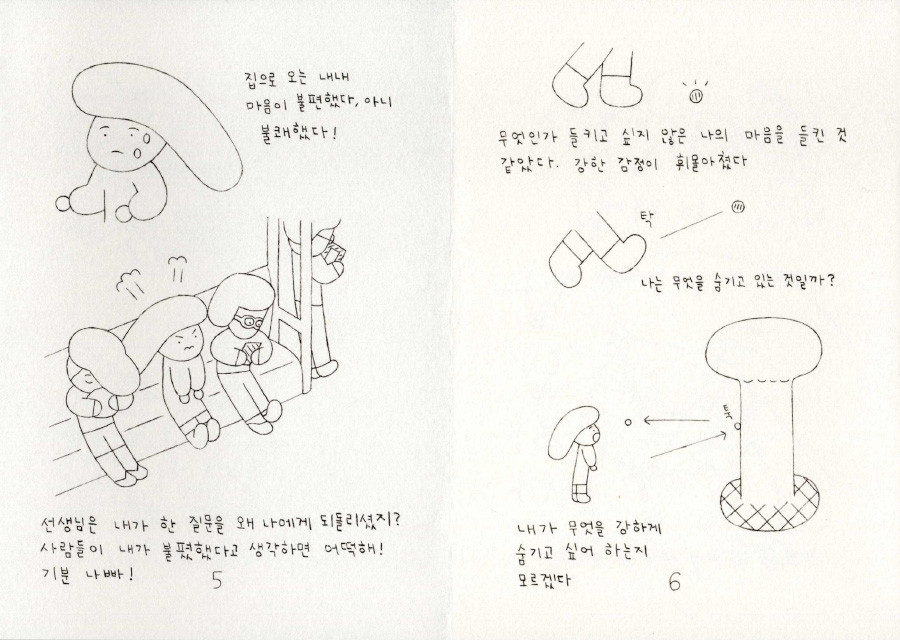 집으로 오는 내내
마음이 불편했다, 아니
불쾌했다!
선생님은 내가 한 질문을 왜 나에게 되돌리셨지?
사람들이 내가 불편했다고 생각하면 어떡해!
기분 나빠!
5
무엇인가 들키고 싶지 않은 나의 마음을 들킨 것
같았다. 강한 감정이 휘몰아쳤다
탁
나는 무엇을 숨기고 있는 것일까?
툭
내가 무엇을 강하게
숨기고 싶어 하는지
모르겠다
6